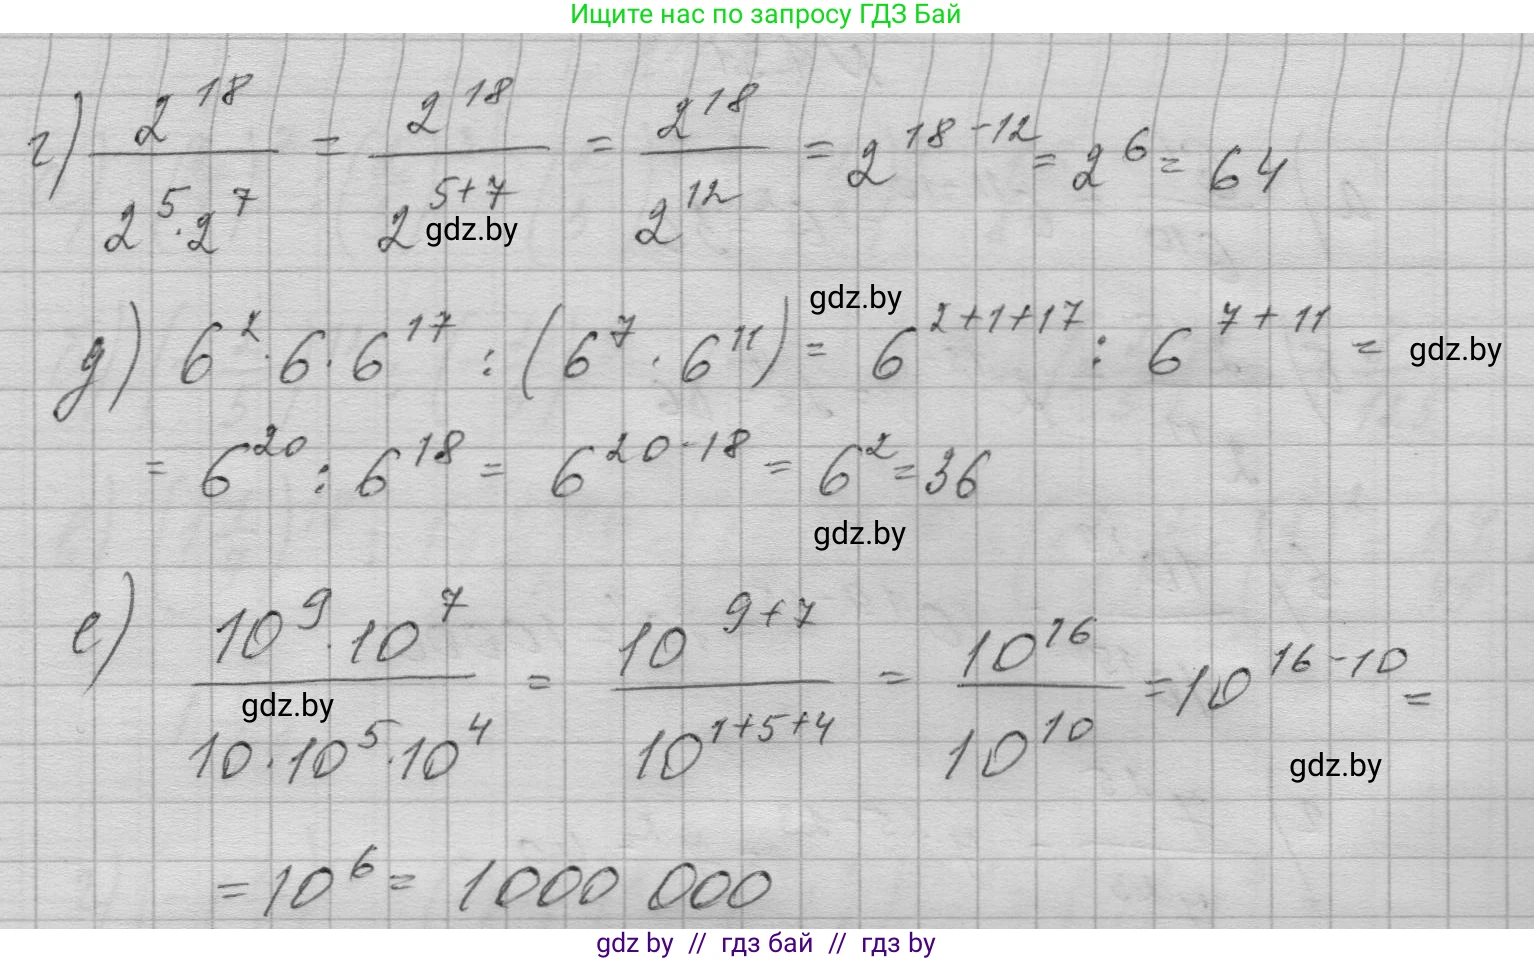 Ищите нас по запросу ГДЗ Бай
г) 2^18 / (2^5 · 2^7) = 2^18 / 2^(5+7) = 2^18 / 2^12 = 2^(18-12) = 2^6 = 64
gdz.by
gdz.by
д) 6^2 · 6 · 6^17 : (6^7 · 6^11) = 6^(2+1+17) : 6^(7+11) =
gdz.by
= 6^20 : 6^18 = 6^(20-18) = 6^2 = 36
gdz.by
е) (10^9 · 10^7) / (10 · 10^5 · 10^4) = 10^(9+7) / 10^(1+5+4) = 10^16 / 10^10 = 10^(16-10) =
gdz.by
gdz.by
= 10^6 = 1000 000
gdz by // гдз бай // гдз by